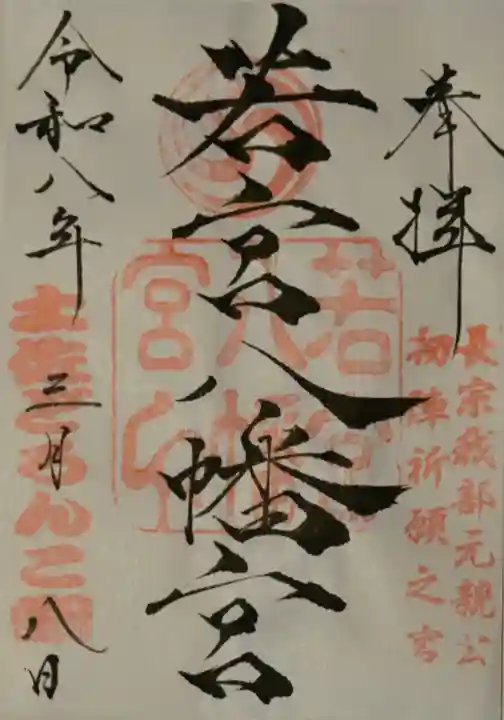 奉拝
長宗我部元親公
初陣祈願之宮
若宮八幡宮
若宮八幡宮
令和八年
三月
八日